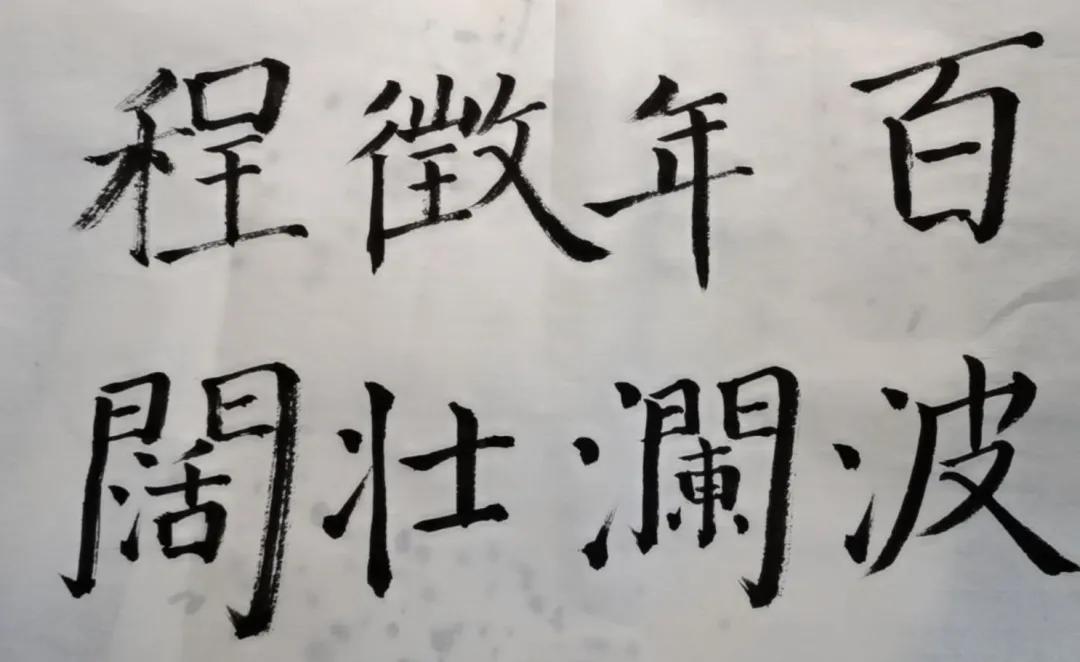 百年徵程
波瀾壮闊